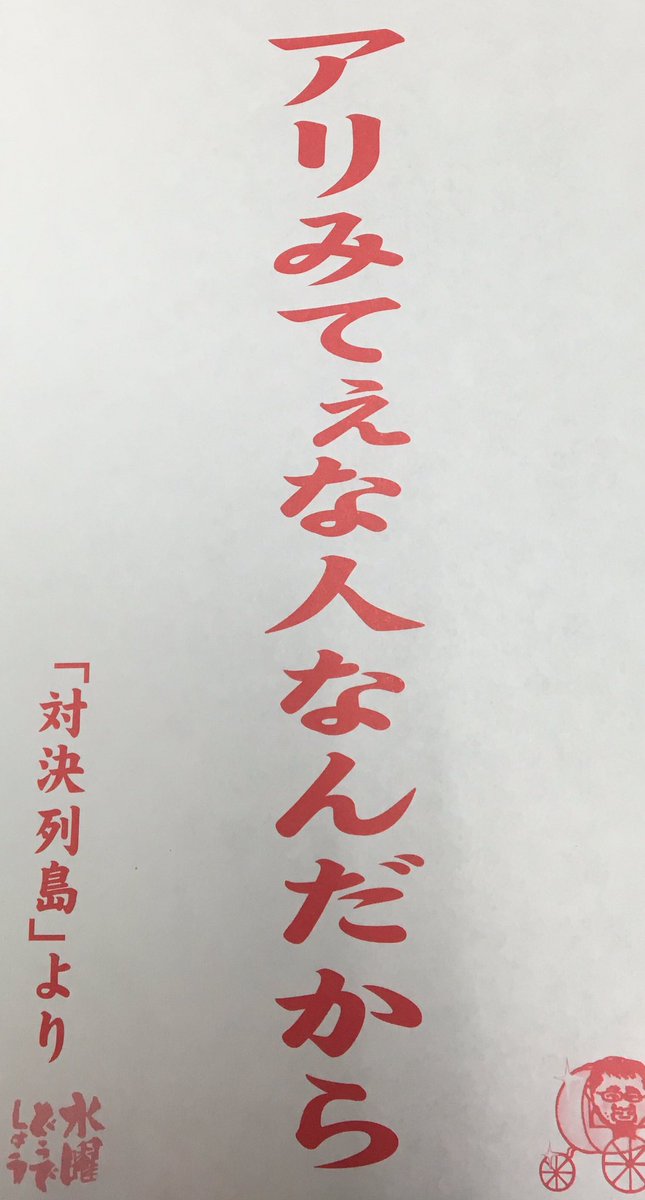 アリみてぇな人なんだから
「対決列島」より
水曜
どうで
しょう